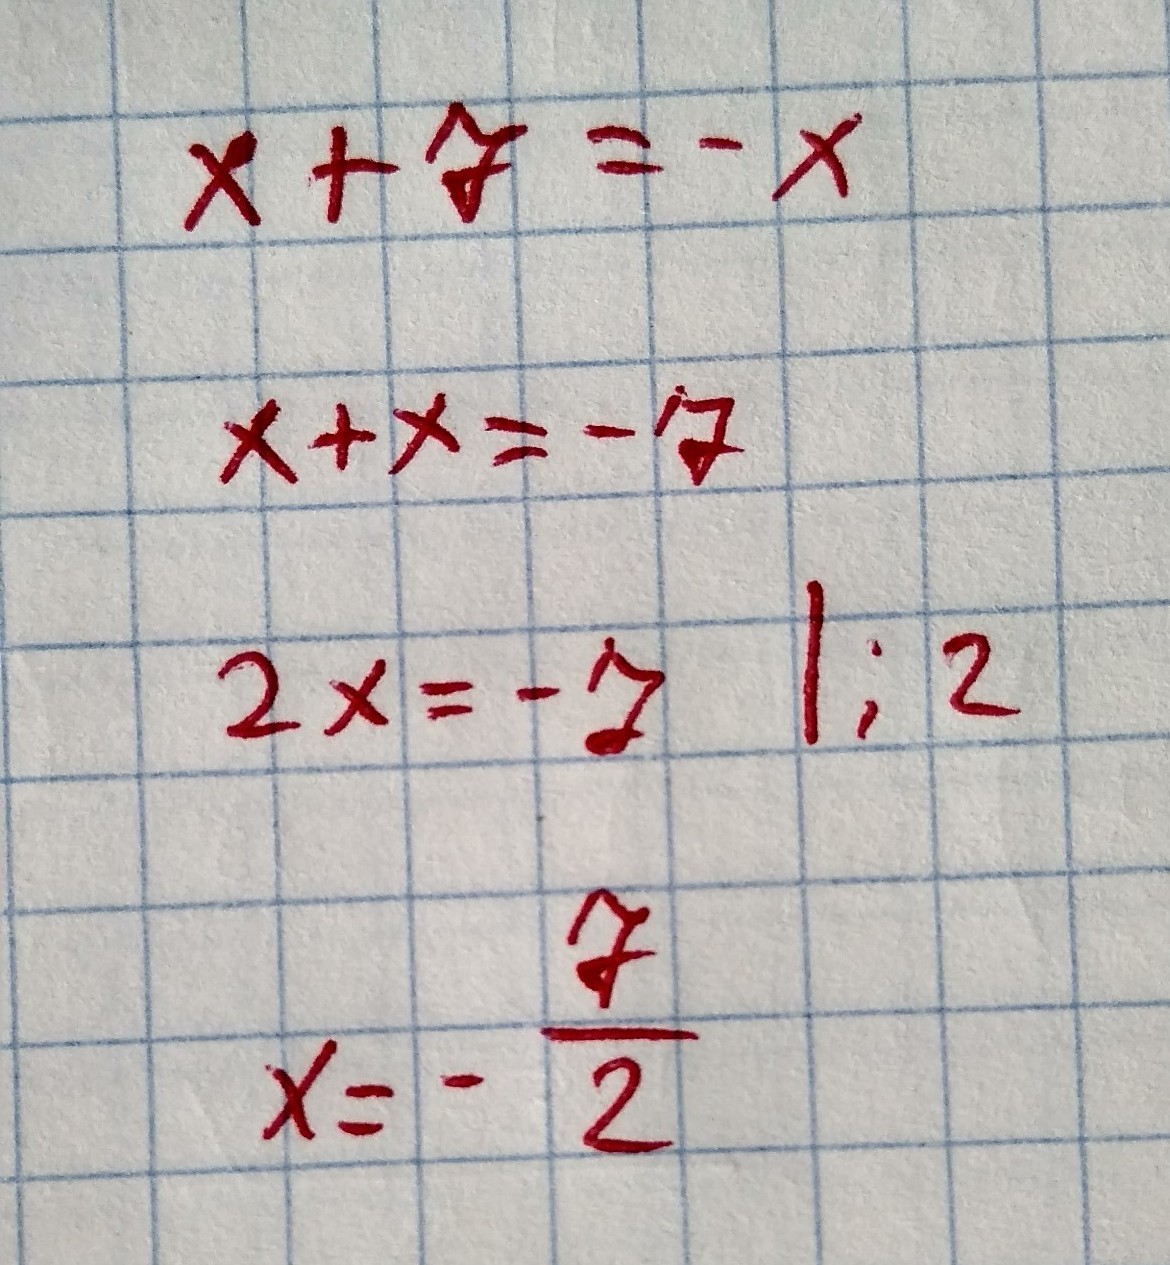 x + 7 = - x
x + x = - 7
2x = - 7 | : 2
x = - 7/2